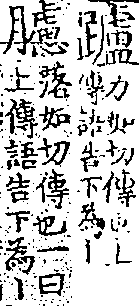 𨇖力如切傳也上
傳語告下為丨
𦢛落如切傳也一曰
上傳語告下為丨